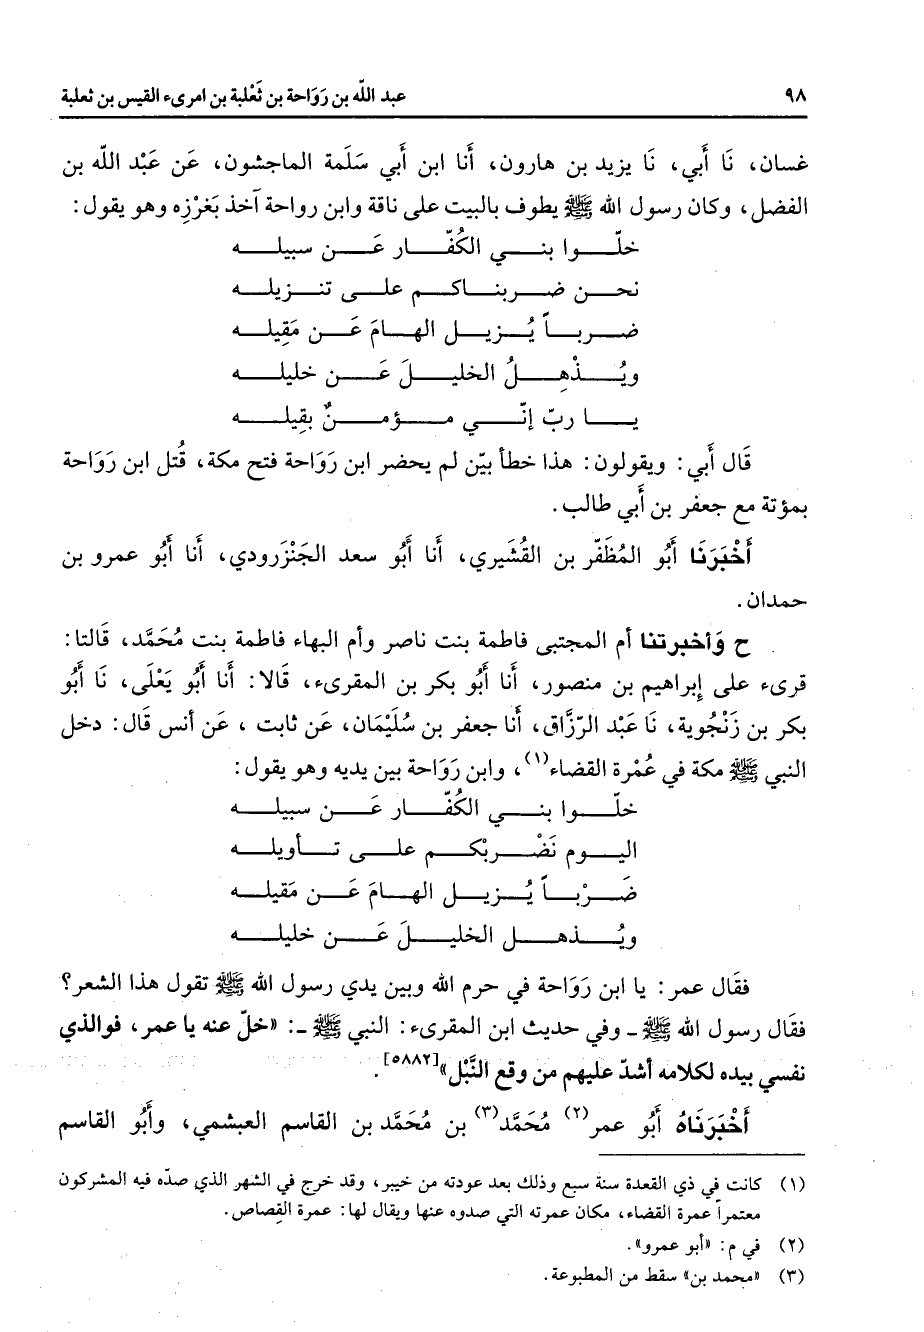 ٩٨ عبد اللّه بن رَوَاحة بن ثَعْلبة بن امرىء القيس بن ثعلبة
غسان، نَا أَبي، نَا يزيد بن هارون، أَنا ابن أَبي سَلَمة الماجشون، عَن عَبْد اللّه بن
الفضل، وكان رسول الله ﷺ يطوف بالبيت على ناقة وابن رواحة آخذ بَغرْزِه وهو يقول:
خلّوا بني الكُفّار عَن سبيله
نحن ضربناكم على تنزيله
ضرباً يُزيل الهامَ عَن مَقِيله
ويُذْهِلُ الخليلَ عَن خليله
يا ربّ إنّي مؤمنٌ بقِيله
قَال أَبي: ويقولون: هذا خطأ بيّن لم يحضر ابن رَوَاحة فتح مكة، قُتل ابن رَوَاحة
بمؤتة مع جعفر بن أَبي طالب.
أَخْبَرَنَا أَبُو المُظَفّر بن القُشَيري، أَنا أَبُو سعد الجَنْزَرودي، أَنا أَبُو عمرو بن
حمدان.
ح وَأخبرتنا أم المجتبى فاطمة بنت ناصر وأم البهاء فاطمة بنت مُحَمَّد، قَالتا:
قرىء على إبراهيم بن منصور، أَنا أَبُو بكر بن المقرىء، قَالا: أَنا أَبُو يَعْلَى، نَا أَبُو
بكر بن زَنْجُوية، نَا عَبْد الرّزَّاق، أَنا جعفر بن سُلَيْمَان، عَن ثابت ، عَن أنس قَال: دخل
النبي ﷺ مكة في عُمْرة القضاء(١)، وابن رَوَاحة بين يديه وهو يقول:
خلّوا بني الكُفّار عَن سبيله
اليوم نَضْربْكم على تأويله
ضَرْباً يُزيل الهامَ عَن مَقيله
ويُذهل الخليلَ عَن خليله
فقَال عمر: يا ابن رَوَاحة في حرم الله وبين يدي رسول الله ﷺ تقول هذا الشعر؟
فقَال رسول الله ﷺ ـ وفي حديث ابن المقرىء: النبي ﷺ ـ: «خلّ عنه يا عمر، فوالذي
نفسي بيده لكلامه أشدّ عليهم من وقع النَّبْل»[٥٨٨٢].
أَخْبَرَنَاهُ أَبُو عمر(٢) مُحَمَّد(٣) بن مُحَمَّد بن القاسم العبشمي، وأَبُو القاسم
(١) كانت في ذي القعدة سنة سبع وذلك بعد عودته من خيبر، وقد خرج في الشهر الذي صدّه فيه المشركون
معتمراً عمرة القضاء، مكان عمرته التي صدوه عنها ويقال لها: عمرة القِصاص.
(٢) في م: «أبو عمرو».
(٣) «محمد بن» سقط من المطبوعة.